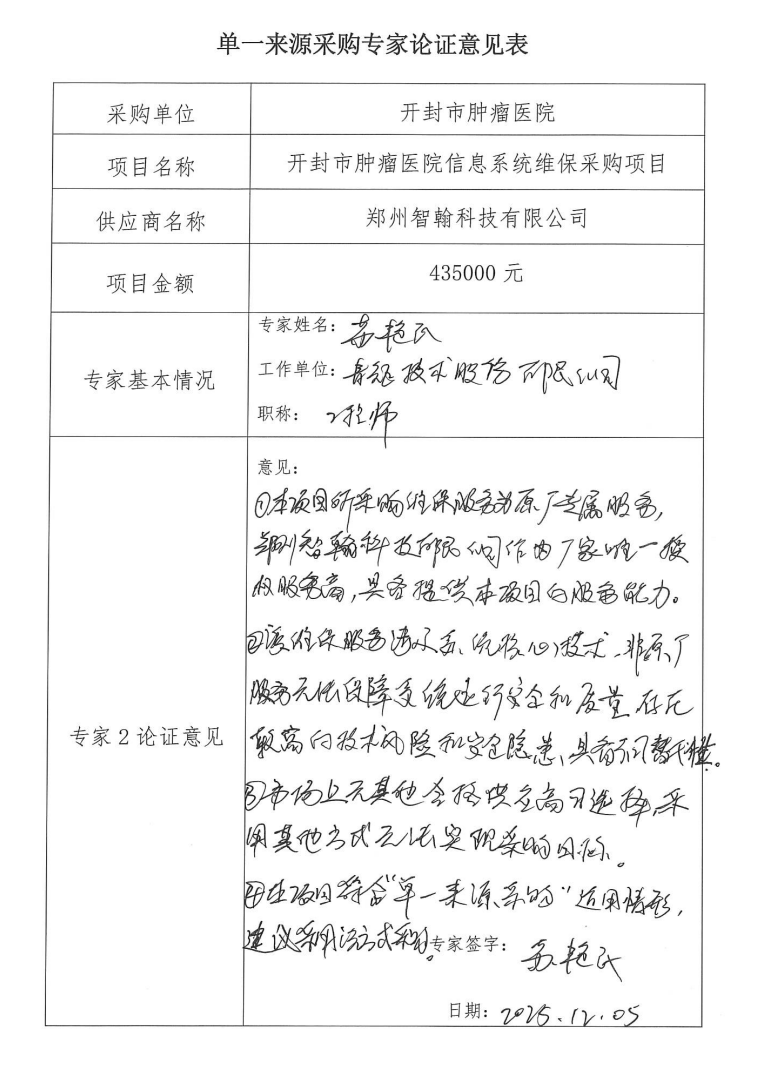 单一来源采购专家论证意见表
采购单位
开封市肿瘤医院
项目名称
开封市肿瘤医院信息系统维保采购项目
供应商名称
郑州智翰科技有限公司
项目金额
435000 元
专家基本情况
专家姓名：苏艳民
工作单位：技术股份有限公司
职称：工程师
专家 2 论证意见
意见：
①本项目所采购维保服务为原厂专属服务，
郑州智翰科技有限公司作为厂家唯一授
权服务商，具备提供本项目的服务能力。
②该维保服务涉及系统核心技术，非原厂
服务无法保障系统运行安全和质量，存在
较高的技术风险和安全隐患，具有不可替代性。
③市场上无其他合格供应商可选择，采
用其他方式无法实现采购目标。
④本项目符合“单一来源采购”适用情形，
建议采用该方式采购。
专家签字：苏艳民
日期：2025.12.05